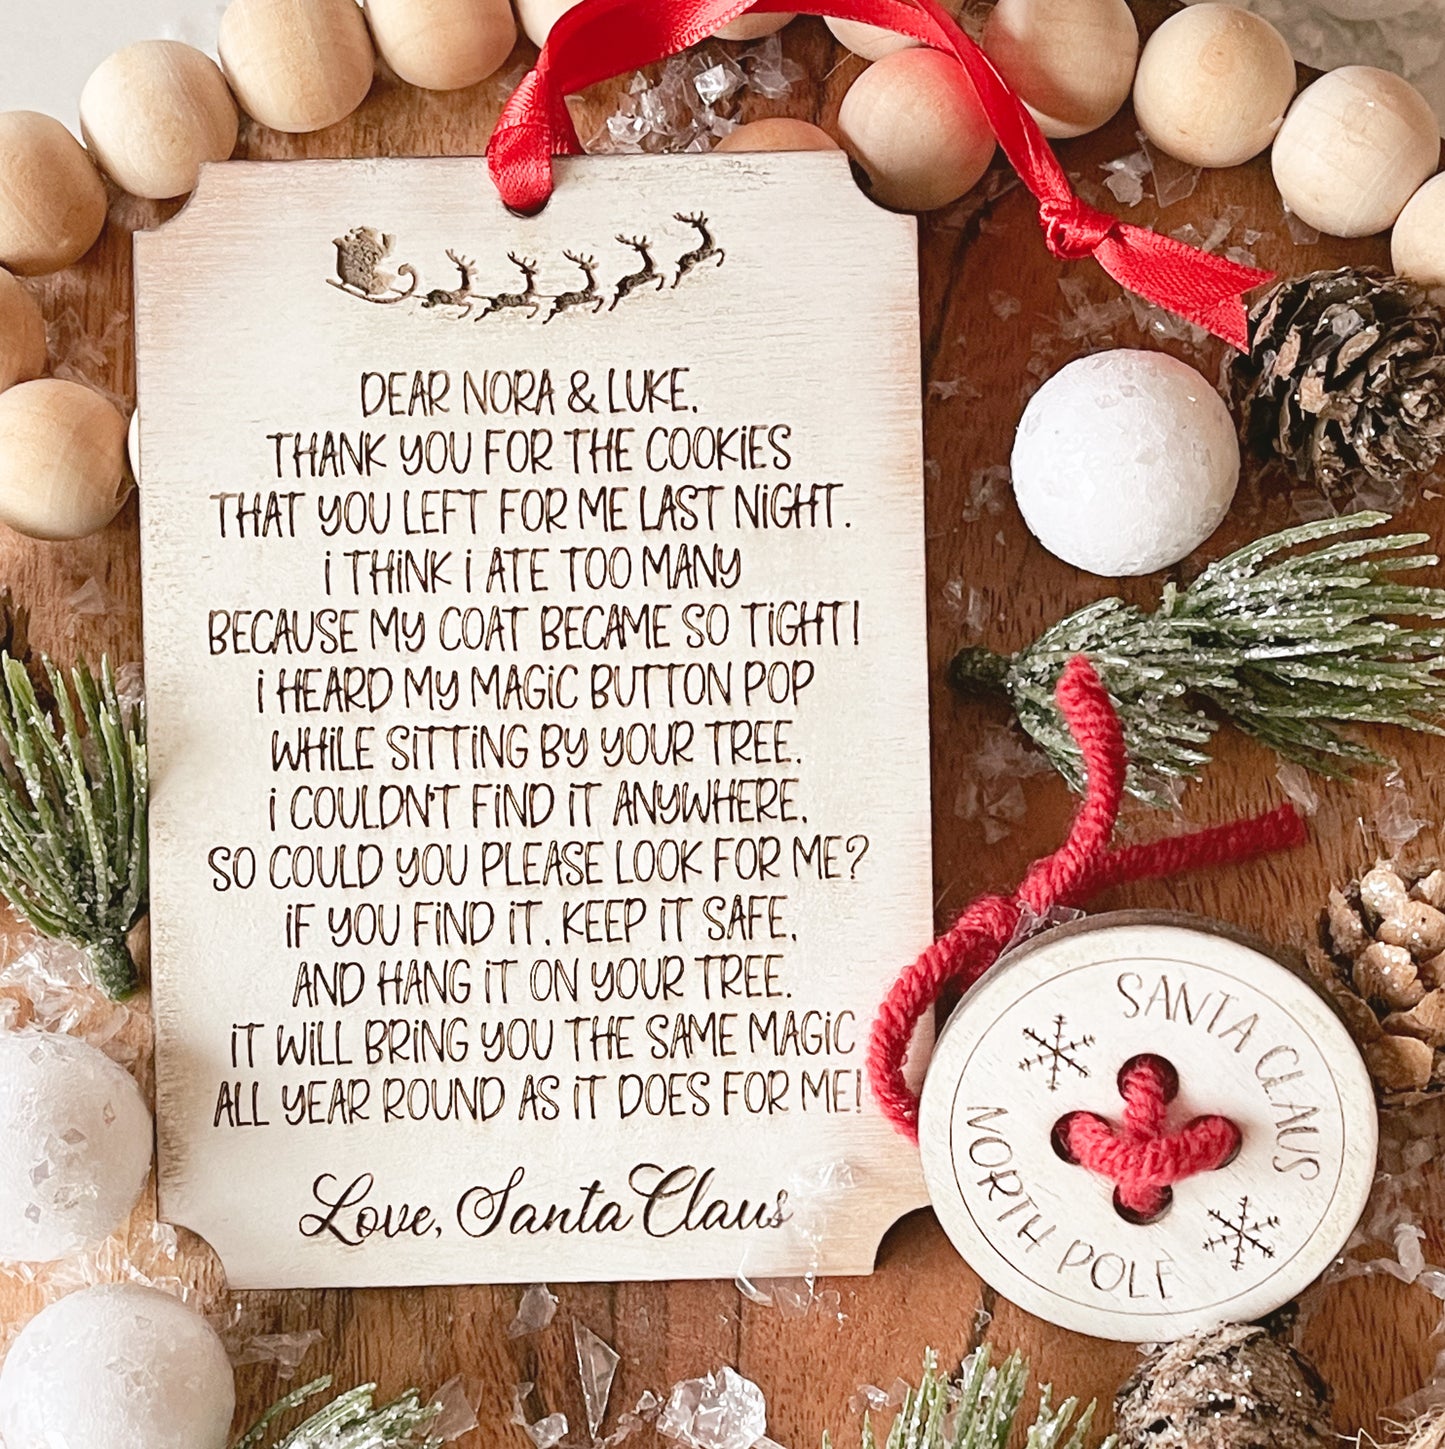 DEAR NORA & LUKE,
THANK YOU FOR THE COOKiES
THAT YOU LEFT FOR ME LAST NiGHT.
i THiNK i ATE TOO MANY
BECAUSE MY COAT BECAME SO TiGHT!
i HEARD MY MAGiC BUTTON POP
WHiLE SiTTiNG BY YOUR TREE.
i COULDN'T FiND iT ANYWHERE,
SO COULD YOU PLEASE LOOK FOR ME?
iF YOU FiND iT, KEEP iT SAFE,
AND HANG iT ON YOUR TREE.
iT WiLL BRiNG YOU THE SAME MAGiC
ALL YEAR ROUND AS iT DOES FOR ME!
Love, Santa Claus
SANTA CLAUS
NORTH POLE